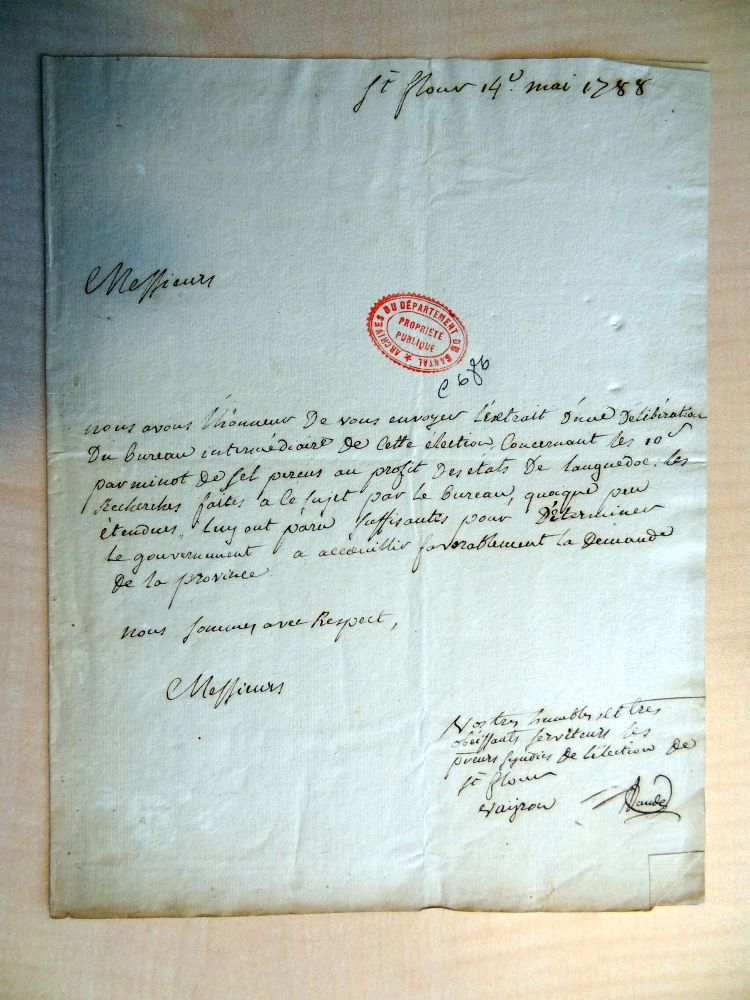 St flour 14e mai 1788
Messieurs
ARCHIVES DU DÉPARTEMENT DU CANTAL
PROPRIÉTÉ
PUBLIQUE
C 686
nous avons l'honneur De vous envoyer l'extrait d'une Délibération
Du bureau intermédiaire de cette élection, Concernant les 10s
par minot de sel percus au profit Des états De languedoc: les
Recherches faites a ce sujet par le bureau, quoique peu
étendues, luy ont paru suffisantes pour Déterminer
Le gouvernement a accueillir favorablement la Demande
De la province
nous sommes avec Respect,
Messieurs
Vos tres humbles et tres
obéissants serviteurs les
sindics de l'élection de
St flour